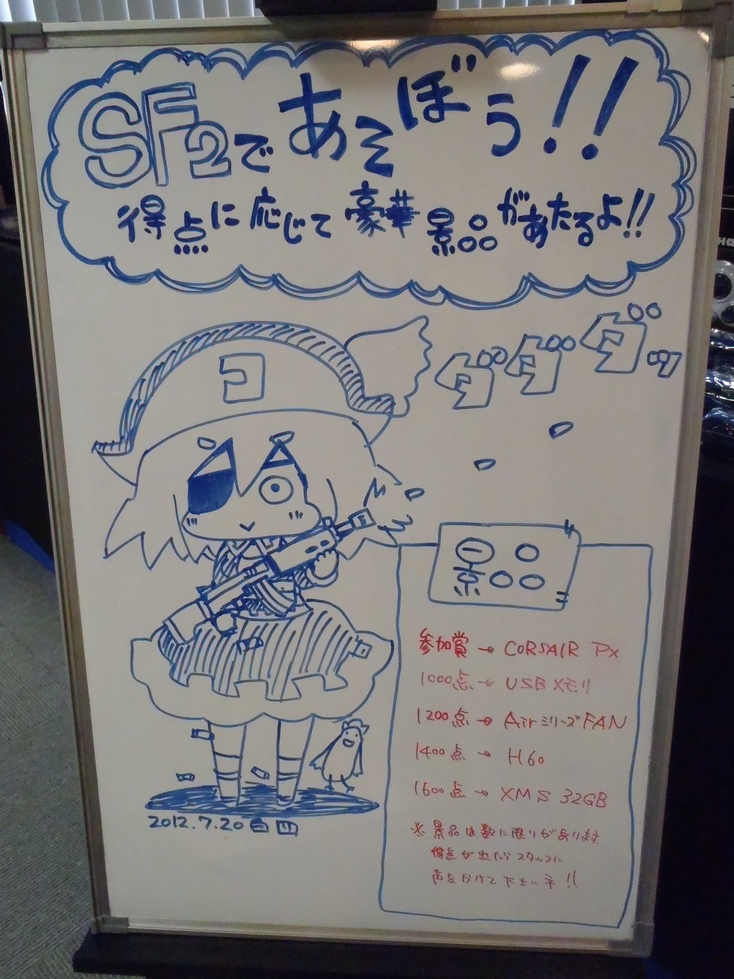 SF2であそぼう!!
得点に応じて豪華景品があたるよ!!
ダダダッ
コ
景品
参加賞→CORSAIR Px
1000点→USBメモリ
1200点→AirシリーズFAN
1400点→H60
1600点→XMS 32GB
※景品は数に限りがあります
得点が出たらスタッフに
声をかけて下さいネ!!
2012.7.20